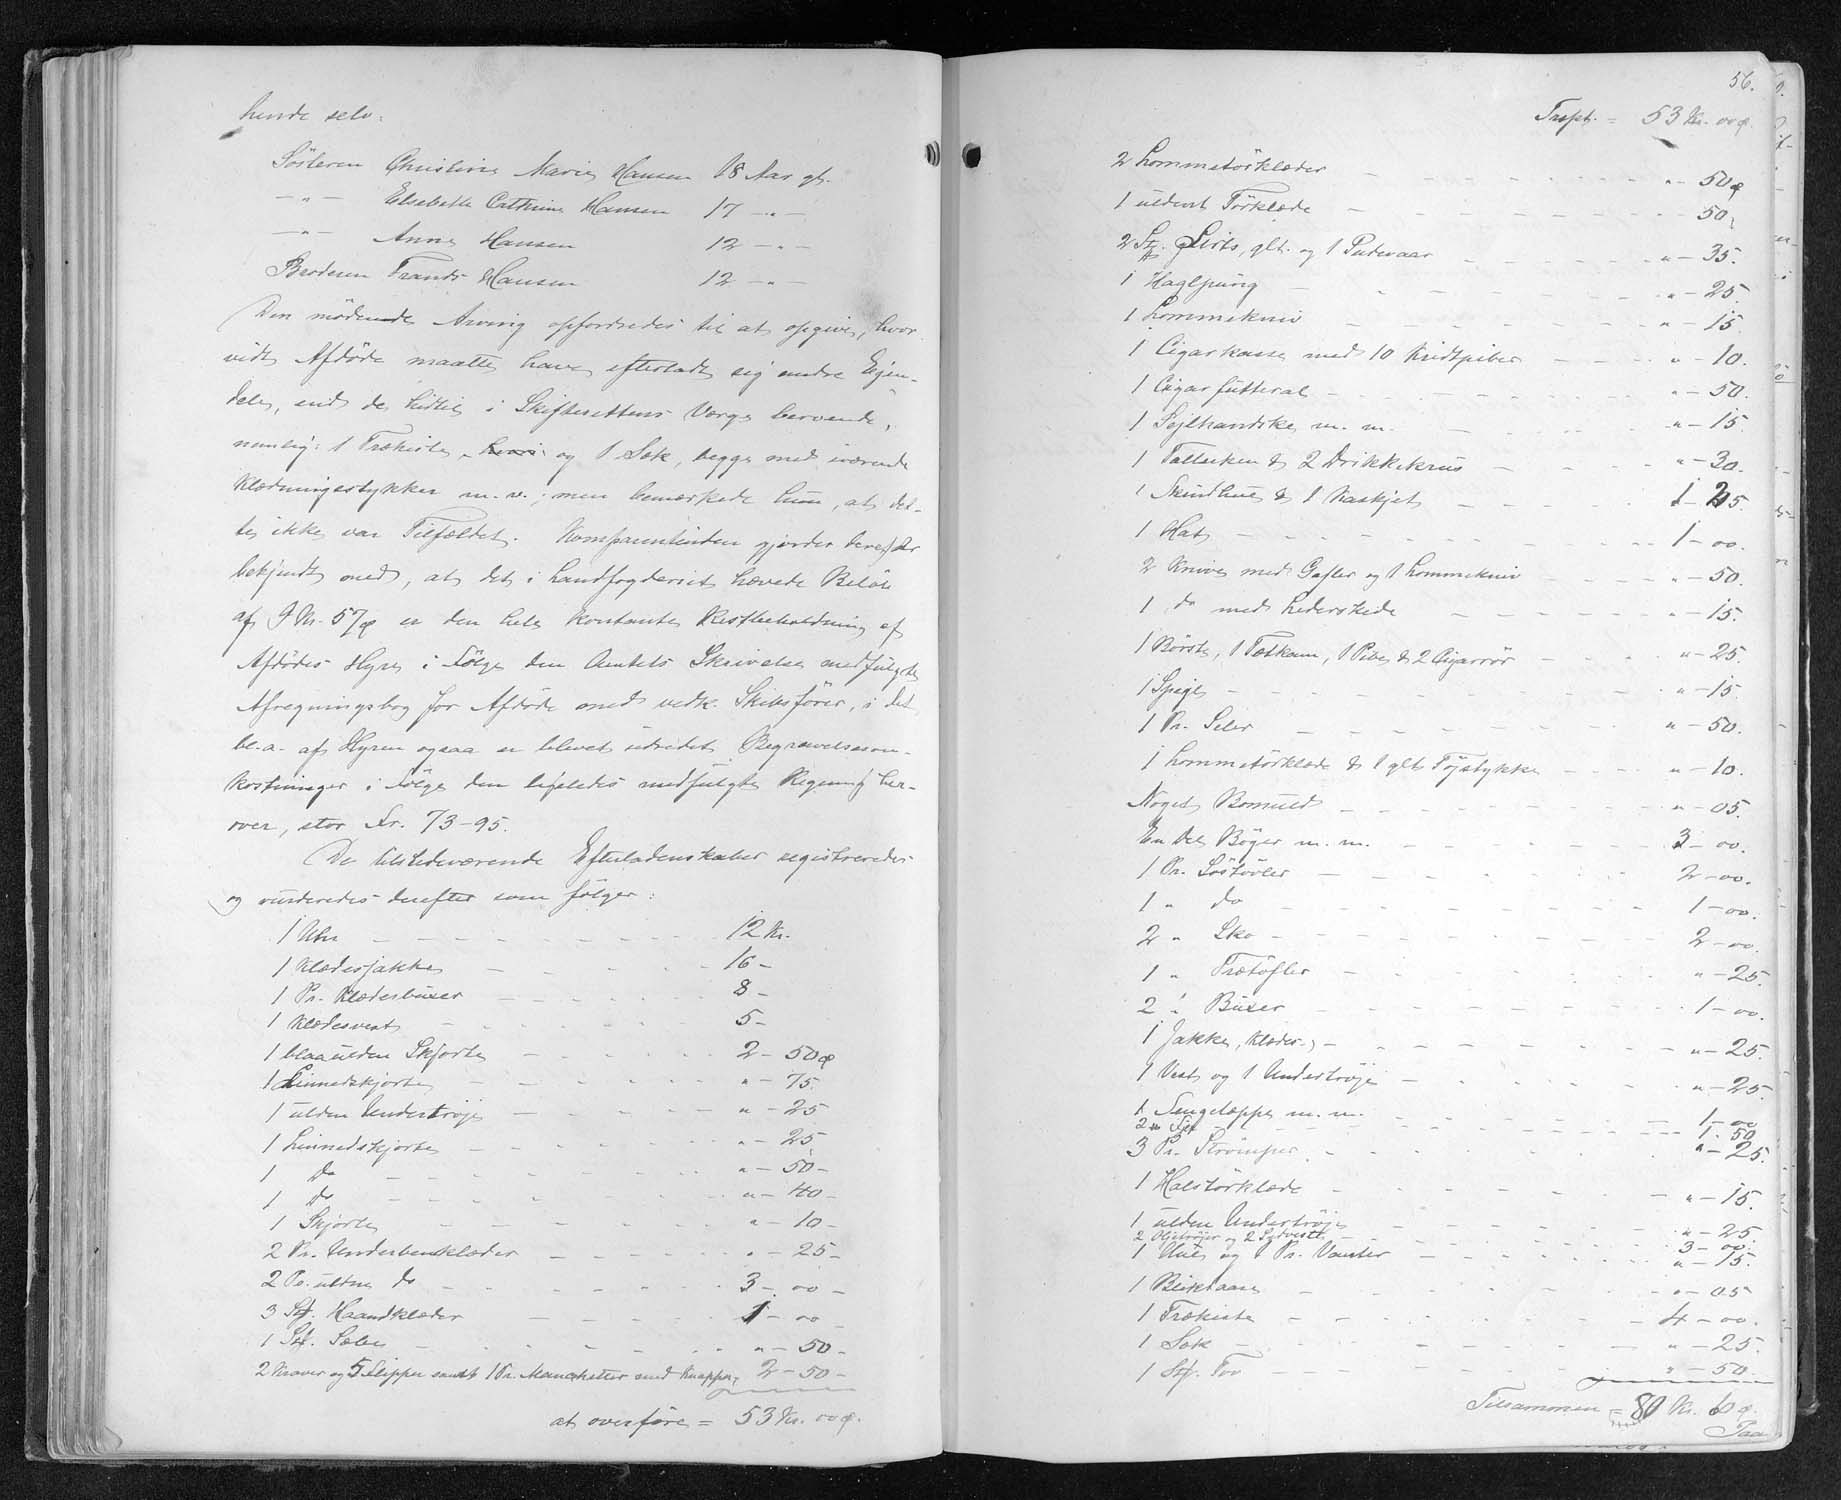 hende selv:
Søsteren Christine Marie Hansen 18 Aar gl.
— " — Elsebeth Cathrine Hansen 17 — " —
— " — Anne Hansen 12 — " —
Broderen Frands Hansen 12 — " —
Den mødende Arving opfordredes til at opgive, hvor-
vidt Afdøde maatte have efterladt sig andre Ejen-
dele, end de hidtil i Skifterettens Værge beroende,
nemlig: 1 Trækiste og 1 Sæk, begge med iværende
Klædningsstykker m. v.; men bemærkede hun, at det-
te ikke var Tilfældet. Komparentinden gjordes derefter
bekjendt med, at det i Landfogderiet hævede Beløb
af 9 Kr. 57 Ø er den hele kontante Restbeholdning af
Afdødes Hyre i Følge den Amtets Skrivelse medfulgte
Afregningsbog for Afdøde med vedk. Skibsfører, i det
bl. a. af Hyren ogsaa er blevet udredet Begravelsesom-
kostninger i Følge den ligeledes medfulgte Regning her-
over, stor Fr. 73-95.
De tilstedeværende Efterladenskaber registreredes
og vurderedes derefter som følger:
1 Uhr 12 Kr.
1 Klædesjakke 16 -
1 Pr. Klædesbuxer 8 -
1 Klædesvest 5 -
1 blaa ulden Skjorte 2 - 50 Ø
1 Linnedskjorte " - 75.
1 ulden Undertrøje " - 25
1 Linnedskjorte " - 25
1 do " - 50 -
1 do " - 40 -
1 Skjorte " - 10 -
2 Pr. Underbenklæder " - 25 -
2 Pr. uldne do 3 - 00 -
3 Stk. Haandklæder 1 - 00 -
1 Stk. Sæbe " - 50 -
2 Kraver og 5 Slipper samt 1 Pr. Manchetter med Knapper, 2 - 50 -
at overføre = 53 Kr. 00 Ø.
56.
Trspt. = 53 Kr. 00 Ø.
2 Lommetørklæder " - 50 Ø
1 uldent Tørklæde 50
2 Stk. Sirts, glt. og 1 Pudevaar " - 35.
1 Haglpung " - 25.
1 Lommekniv " - 15.
1 Cigarkasse med 10 Kridtpiber " - 10.
1 Cigarfutteral " - 50.
1 Sejlhandske m. m. " - 15.
1 Tallerken & 2 Drikkekrus " - 30.
1 Skindhue & 1 Kaskjet 1 - 25.
1 Hat 1 - 00.
2 Knive med Gafler og 1 Lommekniv " - 50.
1 do med Lederskede " - 15.
1 Børste, 1 Tætkam, 1 Pibe & 2 Cigarrør " - 25.
1 Spejl " - 15.
1 Pr. Seler " - 50.
1 Lommetørklæde & 1 glt. Tøjstykke " - 10.
Noget Bomuld " - 05.
En Del Bøger m. m. 3 - 00.
1 Pr. Søstøvler 2 - 00.
1 " do 1 - 00.
2 " Sko 2 - 00.
1 " Trætøfler " - 25.
2 " Buxer 1 - 00.
1 Jakke, Klædes-, " - 25.
1 Vest og 1 Undertrøje " - 25.
1 Sengetæppe m. m. 1 - 00
1 - 50
3 Pr. Strømper " - 25.
1 Halstørklæde " - 15.
1 ulden Undertrøje " - 25.
2 Oljetrøjer og 2 Sydvester 3 - 00.
1 Hue og 1 Pr. Vanter " - 15.
1 Blikdaase " - 05
1 Trækiste 4 - 00.
1 Sæk " - 25.
1 Stk. Tov " - 50.
Tilsammen = 80 Kr. 60 Ø.
Taa